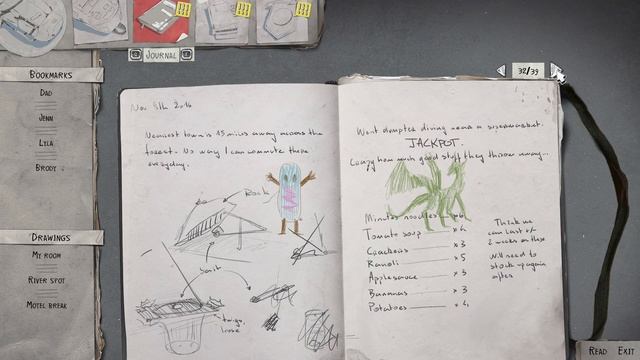 JOURNAL
BOOKMARKS
DAD
JENN
LYLA
BRODY
DRAWINGS
MY ROOM
RIVER SPOT
MOTEL BREAK
32/39
Nov 8th 2016
Nearest town is 15 miles away across the
forest. No way I can commute there
everyday.
Rock
twigs
Went dumpter diving near a supermarket.
JACKPOT.
Crazy how much good stuff they throw away...
Minutes noodles
Tomato soup x 4
Crackers x 3
Ravioli x 5
Applesauce x 3
Bananas x 3
Potatoes x 4
Think we
can last
2 weeks on these
Will need to
stock up again
after
READ EXIT